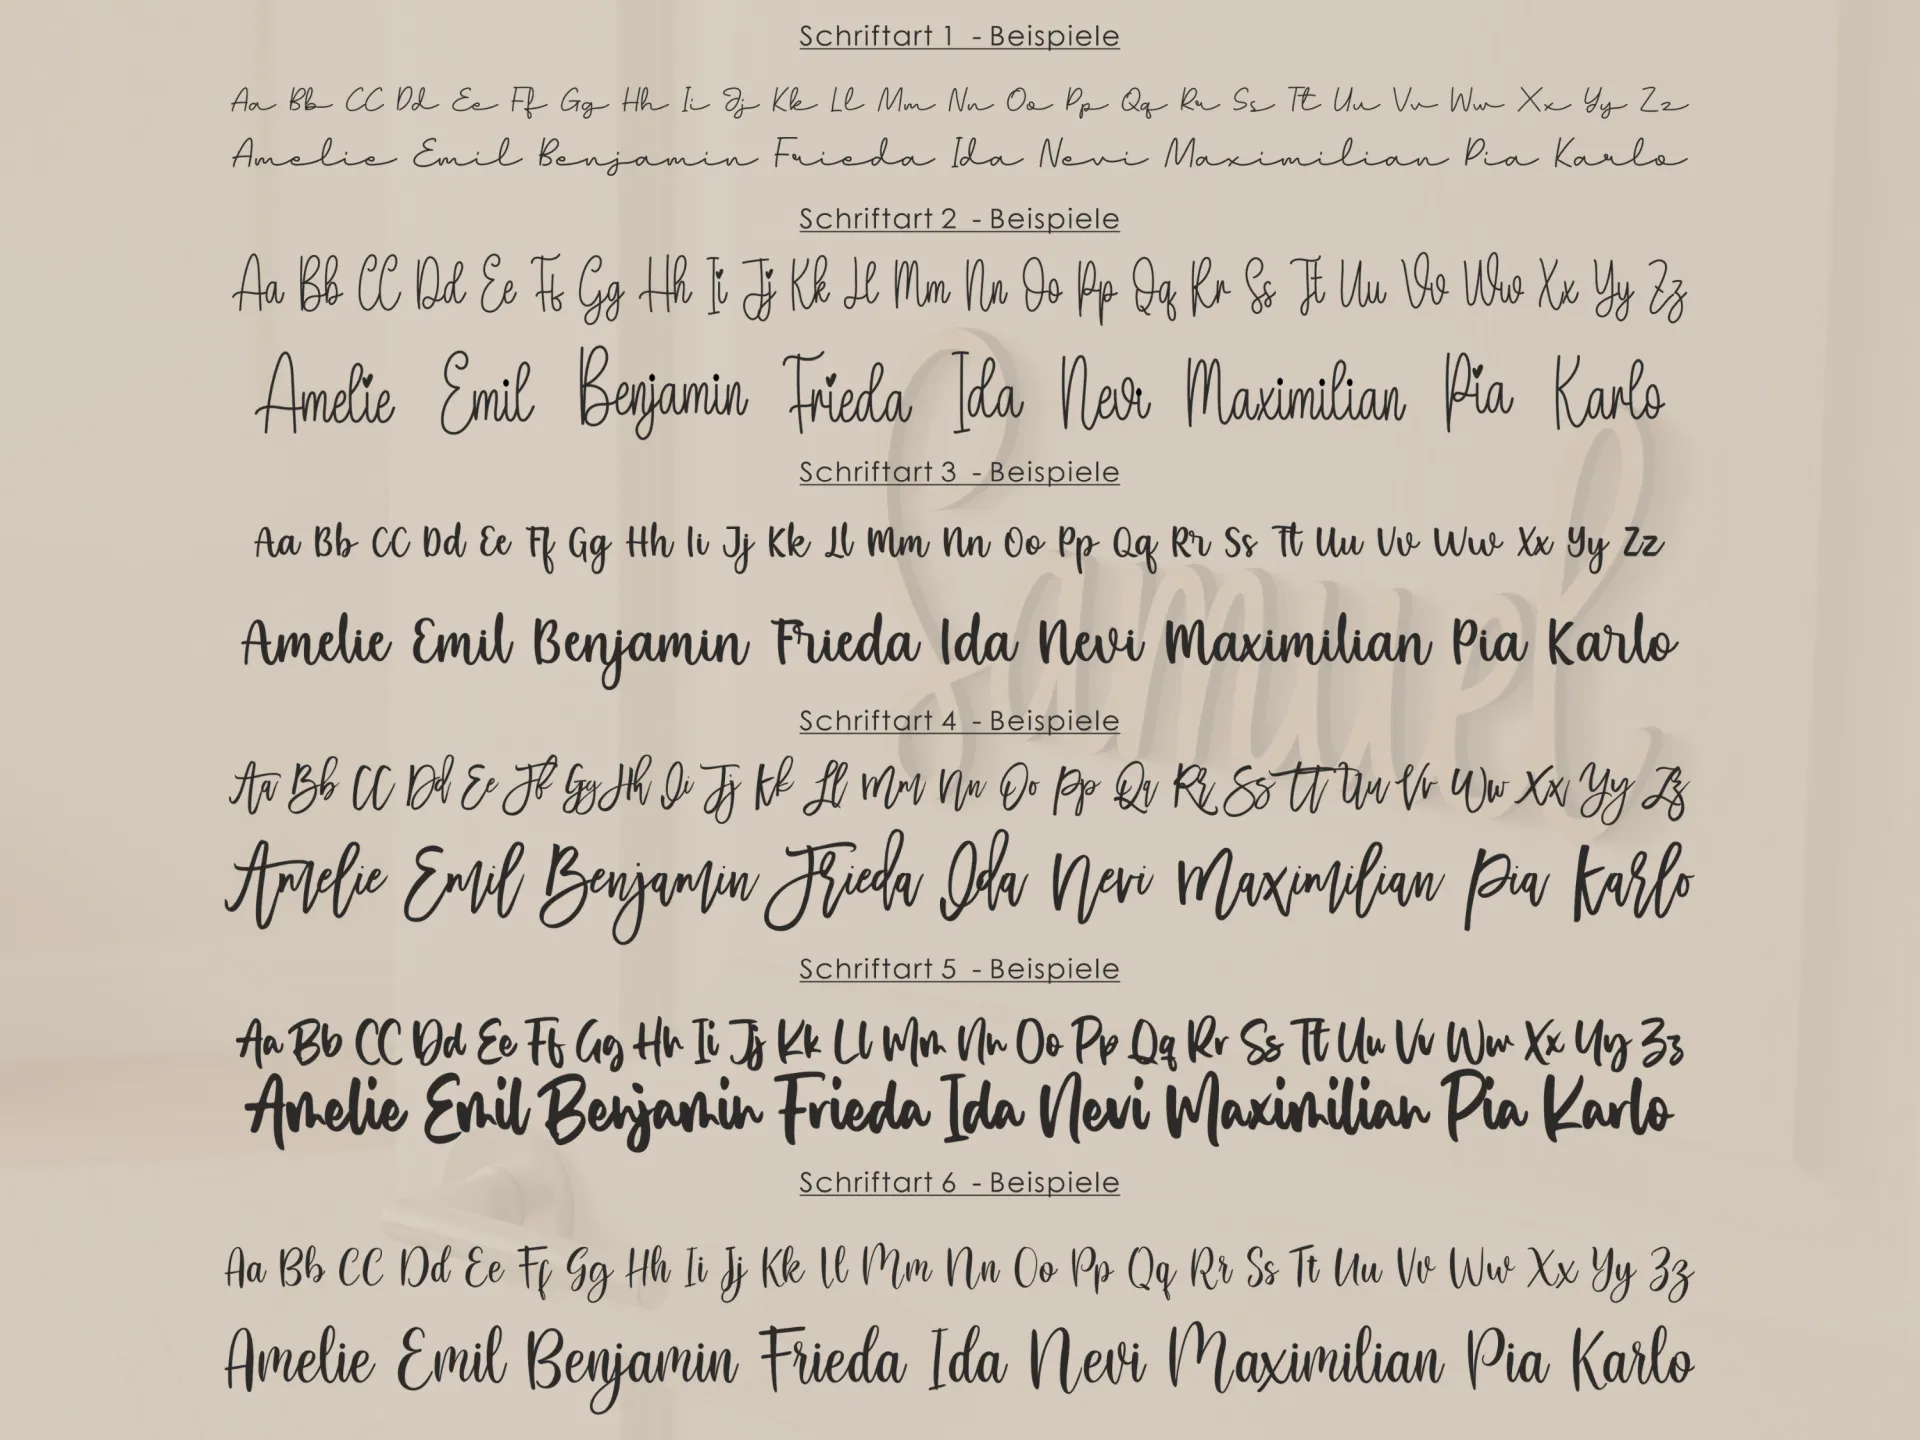 Schriftart 1 - Beispiele
Aa Bb CC Dd Ee Ff Gg Hh Ii Jj Kk Ll Mm Nn Oo Pp Qq Rr Ss Tt Uu Vv Ww Xx Yy Zz
Amelie Emil Benjamin Frieda Ida Nevi Maximilian Pia Karlo
Schriftart 2 - Beispiele
Aa Bb CC Dd Ee Ff Gg Hh Ii Jj Kk Ll Mm Nn Oo Pp Qq Rr Ss Tt Uu Vv Ww Xx Yy Zz
Amelie Emil Benjamin Frieda Ida Nevi Maximilian Pia Karlo
Schriftart 3 - Beispiele
Aa Bb CC Dd Ee Ff Gg Hh Ii Jj Kk Ll Mm Nn Oo Pp Qq Rr Ss Tt Uu Vv Ww Xx Yy Zz
Amelie Emil Benjamin Frieda Ida Nevi Maximilian Pia Karlo
Samuel
Schriftart 4 - Beispiele
Aa Bb CC Dd Ee Ff Gg Hh Ii Jj Kk Ll Mm Nn Oo Pp Qq Rr Ss Tt Uu Vv Ww Xx Yy Zz
Amelie Emil Benjamin Frieda Ida Nevi Maximilian Pia Karlo
Schriftart 5 - Beispiele
Aa Bb CC Dd Ee Ff Gg Hh Ii Jj Kk Ll Mm Nn Oo Pp Qq Rr Ss Tt Uu Vv Ww Xx Yy Zz
Amelie Emil Benjamin Frieda Ida Nevi Maximilian Pia Karlo
Schriftart 6 - Beispiele
Aa Bb CC Dd Ee Ff Gg Hh Ii Jj Kk Ll Mm Nn Oo Pp Qq Rr Ss Tt Uu Vv Ww Xx Yy Zz
Amelie Emil Benjamin Frieda Ida Nevi Maximilian Pia Karlo